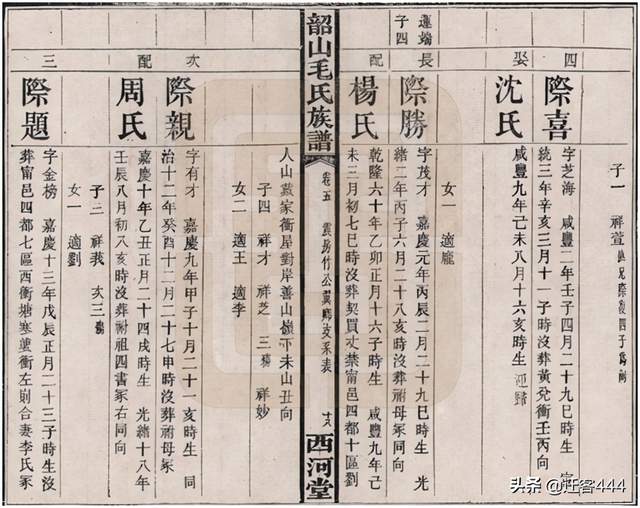 子一 祥萱
四
際喜
字芝海 咸豐二年壬子四月二十九巳時生
統三年辛亥三月十一子時沒葬黃兌衝壬丙向
娶
沈氏
咸豐九年己未八月十六亥時生
女一 適龐
蓮端
子四
長
際勝
字茂才 嘉慶元年丙辰二月二十九巳時生 光
緒二年丙子六月二十八亥時沒葬祔母冢同向
配
楊氏
乾隆六十年乙卯正月十六子時生 咸豐九年己
未三月初七巳時沒葬契買丈禁甯邑四都十區劉
韶山毛氏族譜
卷五 震房竹公翼卿支系表
西河堂
人山 家衝屋對岸善山嶺下未山丑向
子四 祥才 祥芝 三殤 祥妙
女二 適王 適李
次
際親
字有才 嘉慶九年甲子十月二十一亥時生 同
治十二年癸酉十二月二十七申時沒葬祔母冢
配
周氏
嘉慶十年乙丑正月二十四戌時生 光緒十八年
壬辰八月初八亥時沒葬祔祖四書冢右同向
子三 祥莪 次三殤
女一 適劉
三
際題
字金榜 嘉慶十三年戊辰正月二十三子時生沒
葬甯邑四都七區西衝塘寒 衝左 合妻李氏冢
头条 @迁客444